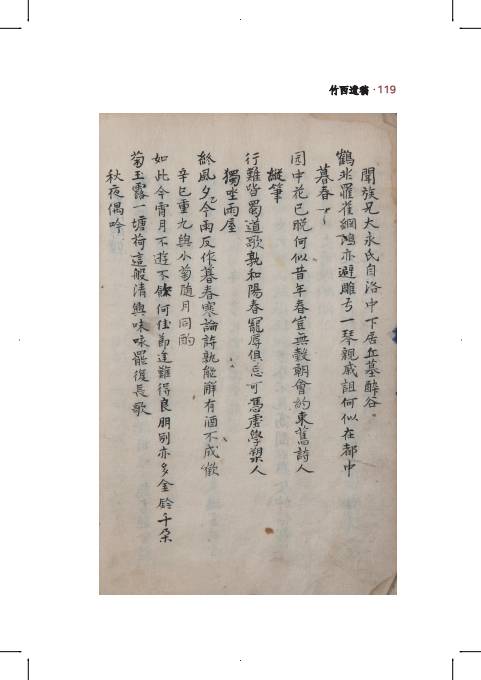 竹西遺稿 · 119
聞族兄大永氏自洛中下居丘墓醉谷
鶴兆羅雀網鴻亦避雕弓一琴親戚詛何似在都中
暮春
園中花已晩何似昔年春豈無數朝會約束舊詩人
縱筆
行難皆蜀道歌孰和陽春寵辱俱忘可馮虛學槊人
獨坐雨屋
風夕今雨反作暮春寒論詩孰能解有酒不成歡
辛巳重九與小菊隨月同酌
如此今宵月不遊不餘何佳節逢難得良朋別亦多金鈴千朶
菊玉露一塘荷這般清興味咏罷復長歌
秋夜偶吟